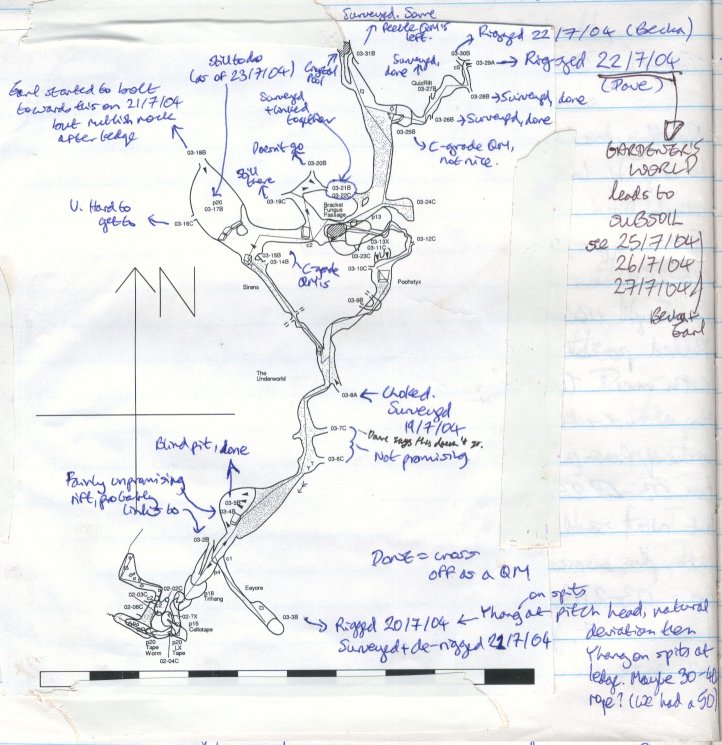 Surveyed. Some
feeble QMs
left.
Rigged 22/7/04 (Becka)
03-31B
03-30B
03-29A
Rigged 22/7/04
(Dave)
Still to do
(as of 23/7/04)
Surveyed,
done
QuizRift
03-27B
03-28B
Surveyed, done
Earl started to bolt
towards this on 21/7/04
but rubbish rock
after ledge
Surveyed
+ linked
together
03-26B
Surveyed, done
03-25B
C-grade QM,
not nice.
GARDENER'S
WORLD
leads to
SUBSOIL
see 25/7/04
26/7/04
27/7/04
Becka,
Earl
03-18B
Doesn't go
03-20B
Still
there
03-21B
03-22C
p20
03-17B
03-19C
Bracket
Fungus
Passage
03-24C
V. Hard to
get to
03-16C
p13
c2
03-13X
03-11C
03-12C
03-23C
03-15B
03-14B
C-grade
QMs
03-10C
Sirens
Poohstyx
03-9B
The
Underworld
03-8A
Choked.
Surveyed
19/7/04
03-7C
Dave says this doesn't go.
Not promising
03-6C
Blind pit, done
Fairly unpromising
rift, probably
links to
03-5B
03-4B
03-2B
Done = cross
off as a QM
c1
p4
Eeyore
02-03C
02-02C
p18
Trihang
02-06C
02-?X
p15
Cellotape
p20
Tape
Worm
p20
LX
Tape
02-04C
03-3B
Rigged 20/7/04
Surveyed + de-rigged 21/7/04
on spits
Yhang at pitch head, natural
deviation then
Yhang on spits at
ledge. Maybe 30-40
rope? (we had a 50)
N